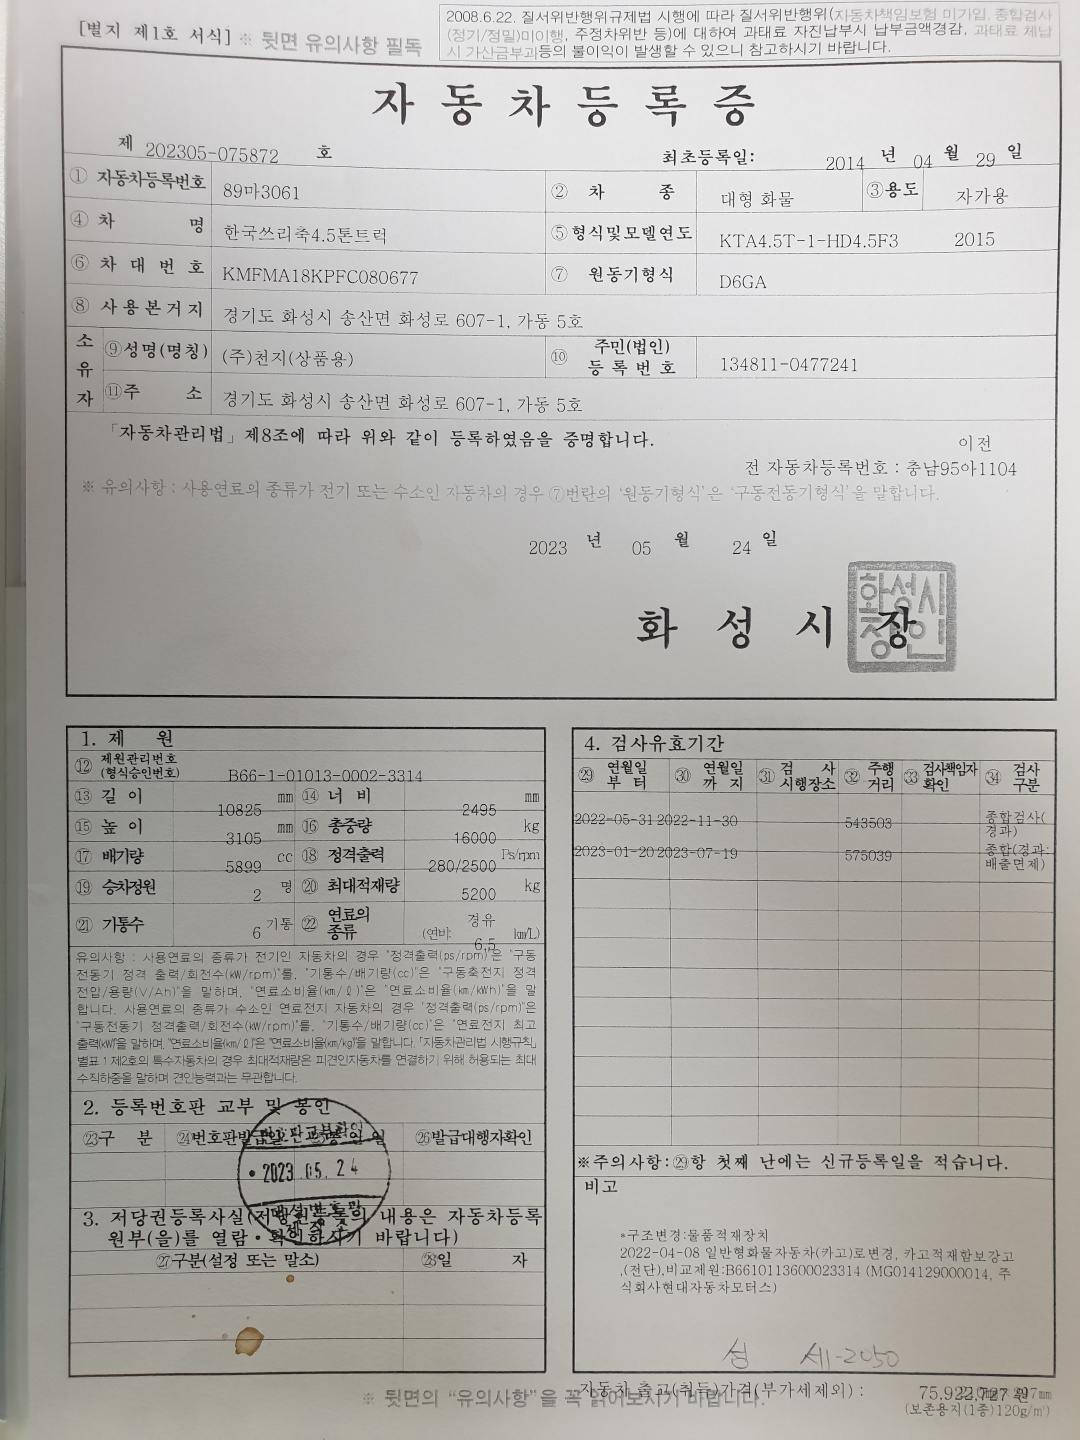 [별지 제1호 서식] ※ 뒷면 유의사항 필독
2008.6.22. 질서위반행위규제법 시행에 따라 질서위반행위(자동차책임보험 미가입, 종합검사
(정기/정밀)미이행, 주정차위반 등)에 대하여 과태료 자진납부시 납부금액경감, 과태료 체납
시 가산금부과등의 불이익이 발생할 수 있으니 참고하시기 바랍니다.
자동차등록증
제 202305-075872 호
최초등록일: 2014 년 04 월 29 일
① 자동차등록번호 89마3061 ② 차 종 대형 화물 ③용도 자가용
④ 차 명 한국쓰리축4.5톤트럭 ⑤형식및모델연도 KTA4.5T-1-HD4.5F3 2015
⑥ 차 대 번 호 KMFMA18KPFC080677 ⑦ 원동기형식 D6GA
⑧ 사용본거지 경기도 화성시 송산면 화성로 607-1, 가동 5호
소유자 ⑨성명(명칭) (주)천지(상품용) ⑩ 주민(법인) 등록번호 134811-0477241
⑪주 소 경기도 화성시 송산면 화성로 607-1, 가동 5호
「자동차관리법」제8조에 따라 위와 같이 등록하였음을 증명합니다.
이전
전 자동차등록번호 : 충남95아1104
※ 유의사항 : 사용연료의 종류가 전기 또는 수소인 자동차의 경우 ⑦번란의 '원동기형식'은 '구동전동기형식'을 말합니다.
2023 년 05 월 24 일
화 성 시 장
화성시장인
1. 제 원
⑫ 제원관리번호 (형식승인번호) B66-1-01013-0002-3314
⑬ 길 이 10825 mm ⑭ 너 비 2495 mm
⑮ 높 이 3105 mm ⑯ 총중량 16000 kg
⑰ 배기량 5899 cc ⑱ 정격출력 280/2500 Ps/rpm
⑲ 승차정원 2 명 ⑳ 최대적재량 5200 kg
㉑ 기통수 6 기통 ㉒ 연료의 종류 경유 (연비: 6.5 km/L)
유의사항 : 사용연료의 종류가 전기인 자동차의 경우 "정격출력(ps/rpm)"은 "구동
전동기 정격 출력/회전수(kW/rpm)"를, "기통수/배기량(cc)"은 "구동축전지 정격
전압/용량(V/Ah)"을 말하며, "연료소비율(km/ℓ)"은 "연료소비율(km/kWh)"을 말
합니다. 사용연료의 종류가 수소인 연료전지 자동차의 경우 "정격출력(ps/rpm)"은
"구동전동기 정격출력/회전수(kW/rpm)"를, "기통수/배기량(cc)"은 "연료전지 최고
출력(kW)"을 말하며, "연료소비율(km/ℓ)"은 "연료소비율(km/kg)"을 말합니다. 「자동차관리법 시행규칙」
별표 1 제2호의 특수자동차의 경우 최대적재량은 피견인자동차를 연결하기 위해 허용되는 최대
수직하중을 말하며 견인능력과는 무관합니다.
2. 등록번호판 교부 및 봉인
㉓구 분 ㉔번호판발급일 ㉕봉인일 ㉖발급대행자확인
번호판교부확인
2023.05.24
3. 저당권등록사실(저당권등록의 내용은 자동차등록
원부(을)를 열람·확인하시기 바랍니다)
㉗구분(설정 또는 말소) ㉘일 자
4. 검사유효기간
㉙ 연월일 부터 ㉚ 연월일 까지 ㉛ 검 사 시행장소 ㉜ 주행 거리 ㉝ 검사책임자 확인 ㉞ 검사 구분
2022-05-31 2022-11-30 543503 종합검사(경과)
2023-01-20 2023-07-19 575039 종합(경과:배출면제)
※주의사항:㉙항 첫째 난에는 신규등록일을 적습니다.
비고
*구조변경:물품적재장치
2022-04-08 일반형화물자동차(카고)로변경, 카고적재함보강고
,(전단),비교제원:B6610113600023314 (MG014129000014, 주
식회사현대자동차모터스)
세-2050
자동차 출고(취득)가격(부가세제외) : 75,922,727 원
※ 뒷면의 "유의사항"을 꼭 읽어보시기 바랍니다.
(보존용지(1종)120g/㎡)